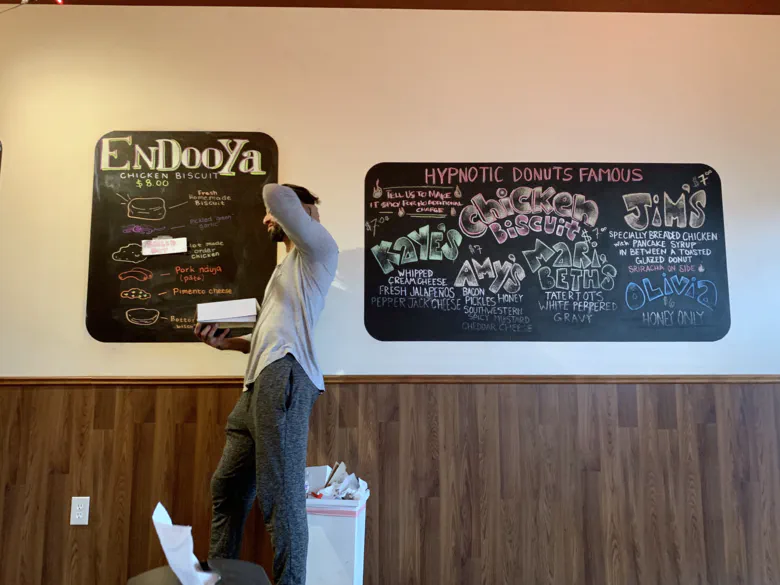 ENDOOYA
CHICKEN BISCUIT
$8.00
Fresh
Homemade
Biscuit
Made
order
Chicken
Pork nduja
(pâté)
Pimento cheese
HYPNOTIC DONUTS FAMOUS
TELL US TO MAKE
IT SPICY FOR NO ADDITIONAL
CHARGE
Chicken
Biscuit
KAYE'S
WHIPPED
CREAM CHEESE
FRESH JALAPENOS
PEPPER JACK CHEESE
$7
AMY'S
BACON
PICKLES, HONEY
SOUTHWESTERN
SPICY MUSTARD
CHEDDAR CHEESE
MARI-
BETH'S
TATER TOTS
WHITE PEPPERED
GRAVY
JIM'S
SPECIALLY BREADED CHICKEN
with PANCAKE SYRUP
IN BETWEEN A TOASTED
GLAZED DONUT
SRIRACHA ON SIDE
OLIVIA
HONEY ONLY